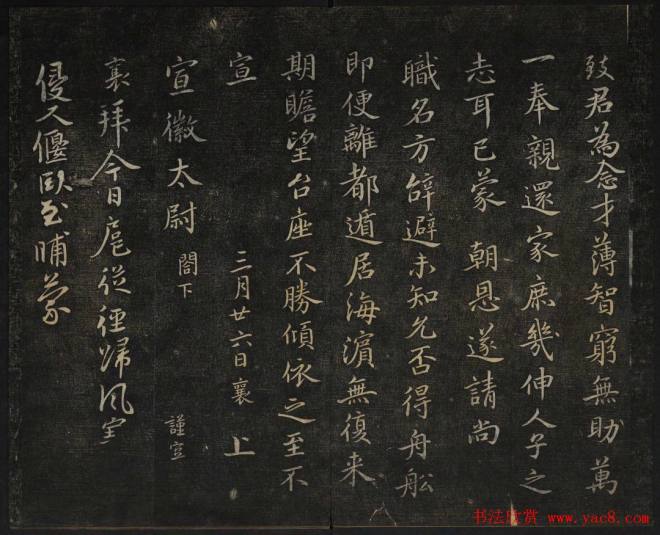 致君為念才薄智窮無助萬
一奉親還家庶幾伸人子之
志耳已蒙 朝恩遂請尚
職名方辭避未知允否得舟舩
即便離都遁居海濵無復来
期瞻望台座不勝傾依之至不
宣 三月廿六日襄 上
宣徽太尉 閤下 謹空
襄拜今日扈從徑歸風寒
侵人偃卧至晡蒙
书法欣赏 www.yac8.com